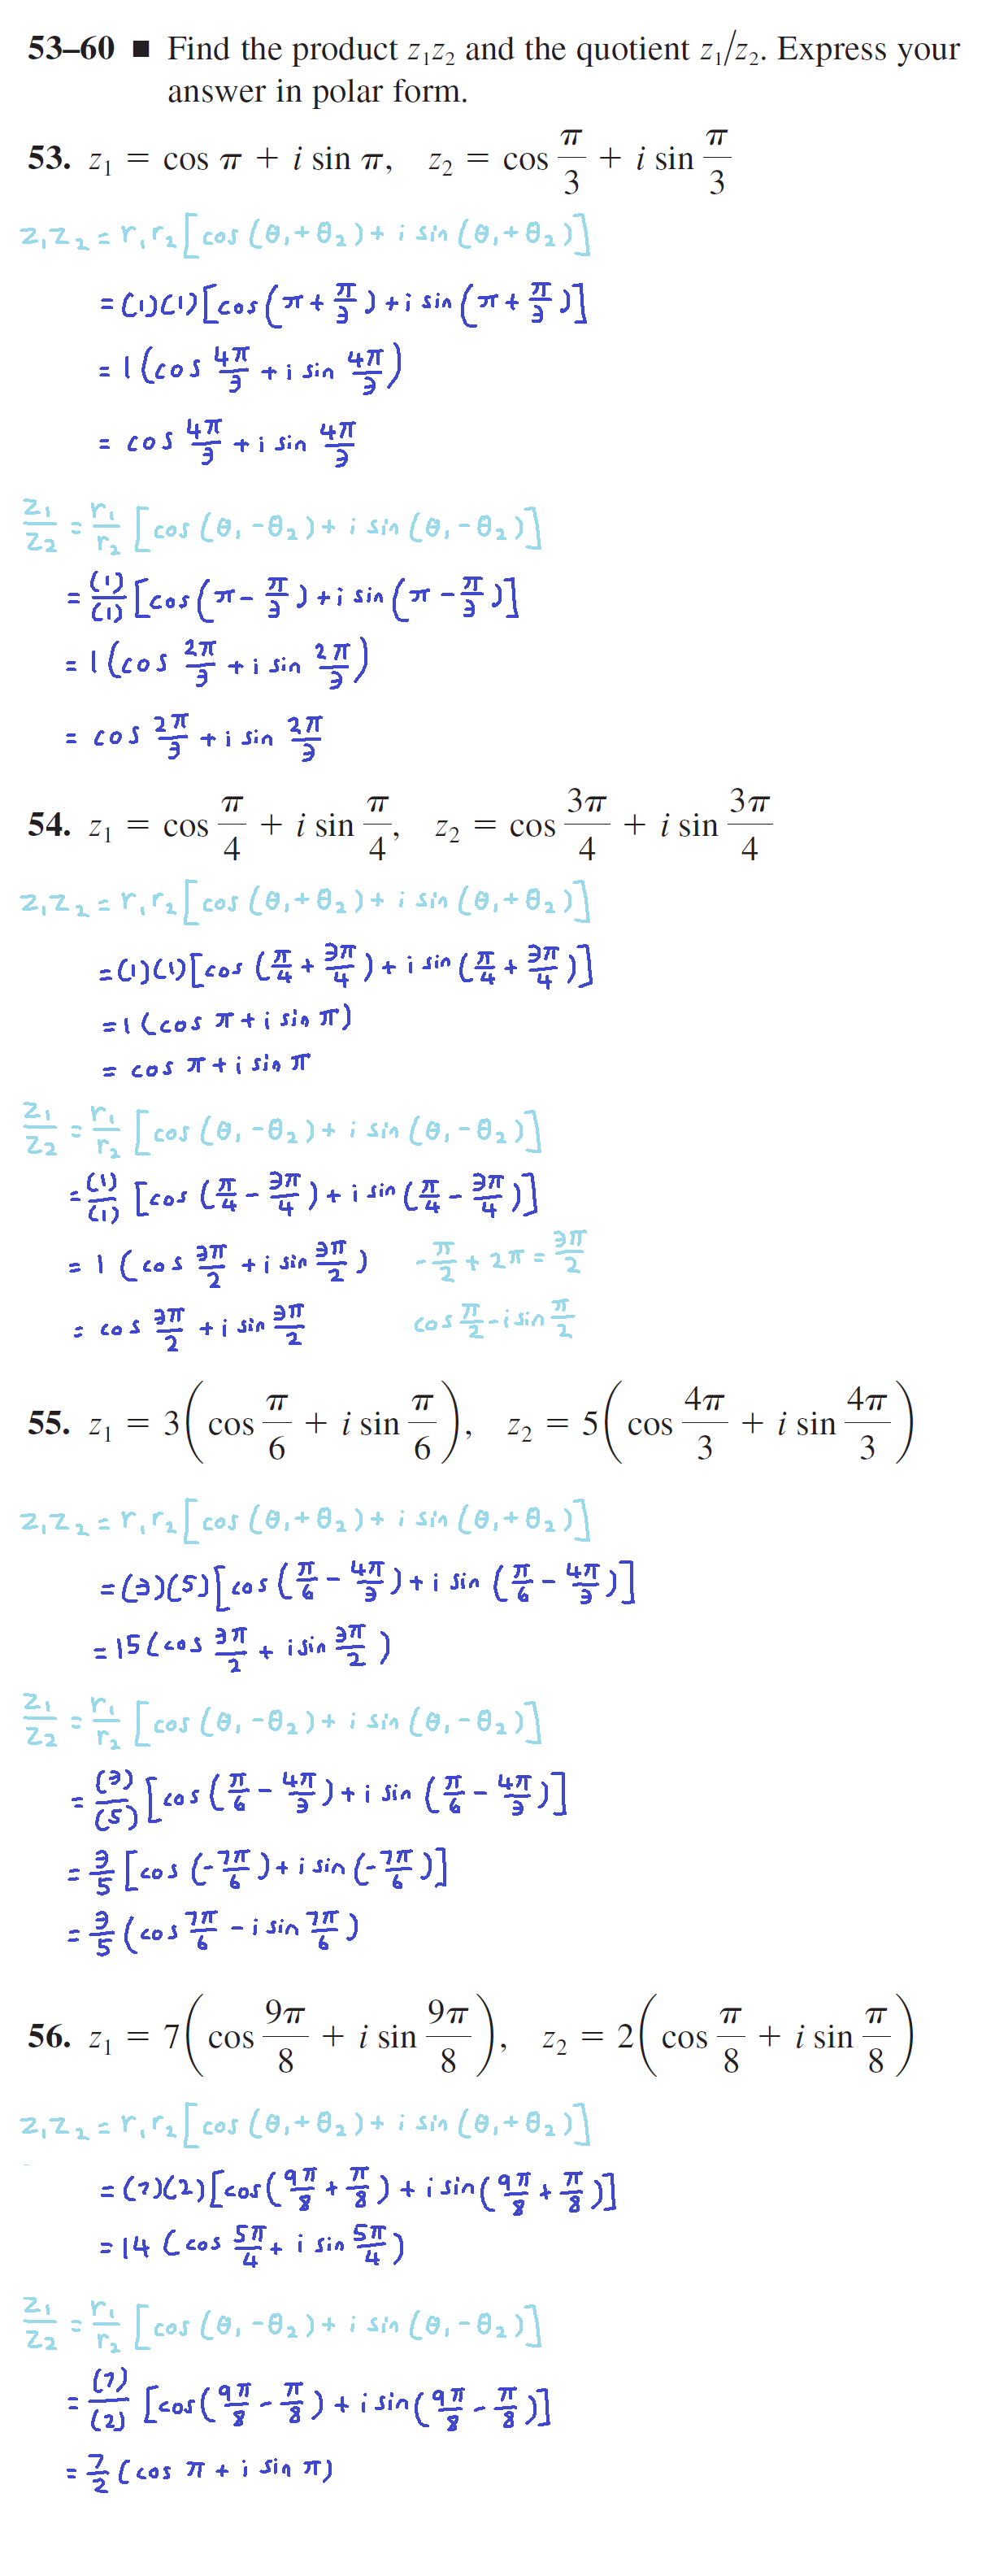 53–60 ■ Find the product z₁z₂ and the quotient z₁/z₂. Express your
answer in polar form.
53. z₁ = cos π + i sin π, z₂ = cos π/3 + i sin π/3
z₁z₂ = r₁r₂[cos(θ₁+θ₂) + i sin(θ₁+θ₂)]
= (1)(1)[cos(π + π/3) + i sin(π + π/3)]
= 1(cos 4π/3 + i sin 4π/3)
= cos 4π/3 + i sin 4π/3
z₁/z₂ = r₁/r₂ [cos(θ₁-θ₂) + i sin(θ₁-θ₂)]
= (1)/(1) [cos(π - π/3) + i sin(π - π/3)]
= 1(cos 2π/3 + i sin 2π/3)
= cos 2π/3 + i sin 2π/3
54. z₁ = cos π/4 + i sin π/4, z₂ = cos 3π/4 + i sin 3π/4
z₁z₂ = r₁r₂[cos(θ₁+θ₂) + i sin(θ₁+θ₂)]
= (1)(1)[cos(π/4 + 3π/4) + i sin(π/4 + 3π/4)]
= 1(cos π + i sin π)
= cos π + i sin π
z₁/z₂ = r₁/r₂ [cos(θ₁-θ₂) + i sin(θ₁-θ₂)]
= (1)/(1) [cos(π/4 - 3π/4) + i sin(π/4 - 3π/4)]
= 1(cos 3π/2 + i sin 3π/2) -π/2 + 2π = 3π/2
= cos 3π/2 + i sin 3π/2 cos π/2 - i sin π/2
55. z₁ = 3(cos π/6 + i sin π/6), z₂ = 5(cos 4π/3 + i sin 4π/3)
z₁z₂ = r₁r₂[cos(θ₁+θ₂) + i sin(θ₁+θ₂)]
= (3)(5)[cos(π/6 - 4π/3) + i sin(π/6 - 4π/3)]
= 15(cos 3π/2 + i sin 3π/2)
z₁/z₂ = r₁/r₂ [cos(θ₁-θ₂) + i sin(θ₁-θ₂)]
= (3)/(5) [cos(π/6 - 4π/3) + i sin(π/6 - 4π/3)]
= 3/5 [cos(-7π/6) + i sin(-7π/6)]
= 3/5 (cos 7π/6 - i sin 7π/6)
56. z₁ = 7(cos 9π/8 + i sin 9π/8), z₂ = 2(cos π/8 + i sin π/8)
z₁z₂ = r₁r₂[cos(θ₁+θ₂) + i sin(θ₁+θ₂)]
= (7)(2)[cos(9π/8 + π/8) + i sin(9π/8 + π/8)]
= 14(cos 5π/4 + i sin 5π/4)
z₁/z₂ = r₁/r₂ [cos(θ₁-θ₂) + i sin(θ₁-θ₂)]
= (7)/(2) [cos(9π/8 - π/8) + i sin(9π/8 - π/8)]
= 7/2 (cos π + i sin π)